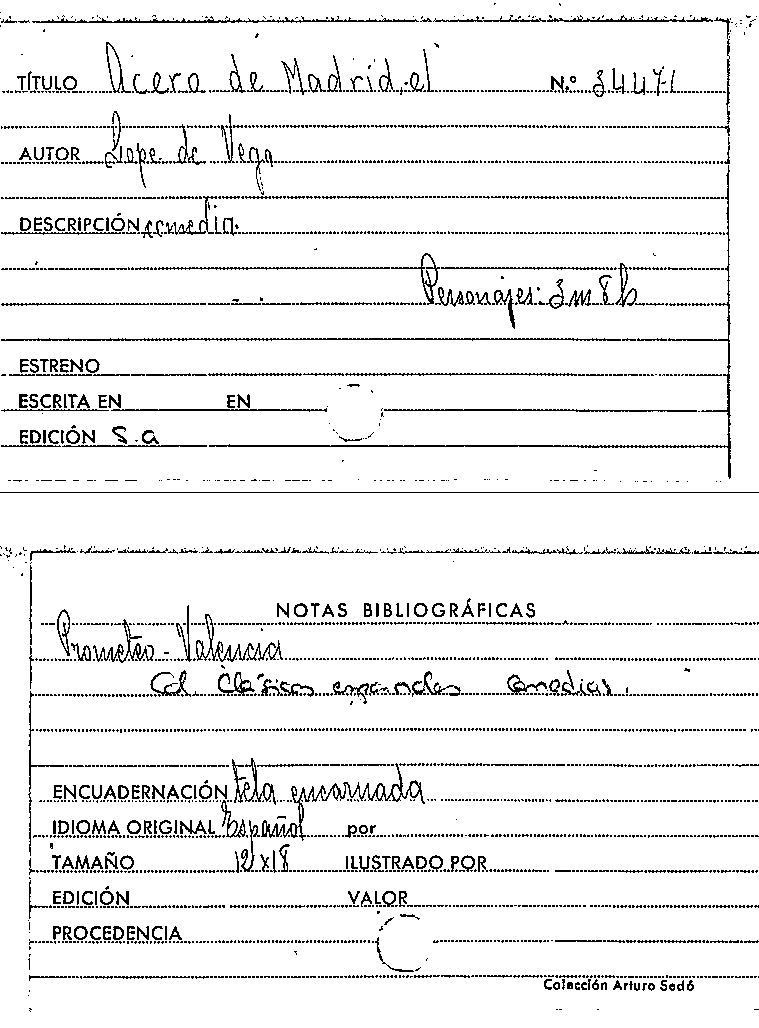 TÍTULO Acero de Madrid,-el N.º 34471
AUTOR Lope de Vega
DESCRIPCIÓN comedia.
Personajes: 3m 8h
ESTRENO
ESCRITA EN EN
EDICIÓN S.a
NOTAS BIBLIOGRÁFICAS
Prometeo - Valencia
Col. Clásicos españoles Comedias.
ENCUADERNACIÓN tela encarnada
IDIOMA ORIGINAL Español por
TAMAÑO 12x18 ILUSTRADO POR
EDICIÓN VALOR
PROCEDENCIA
Colección Arturo Sedó